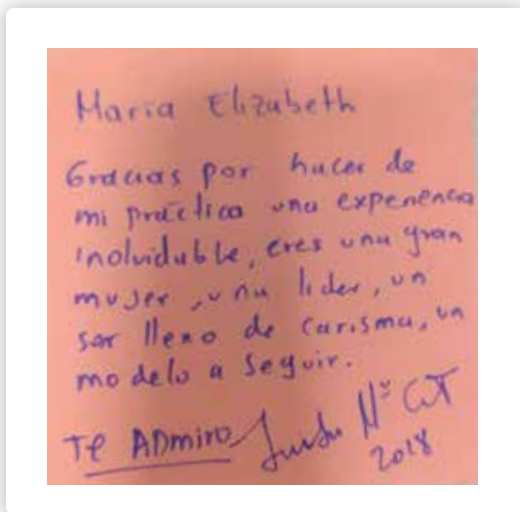 Maria Elizabeth
Gracias por hacer de
mi práctica una experiencia
inolvidable, eres una gran
mujer, una lider, un
ser lleno de carisma, un
modelo a seguir.
Te ADmiro
2018